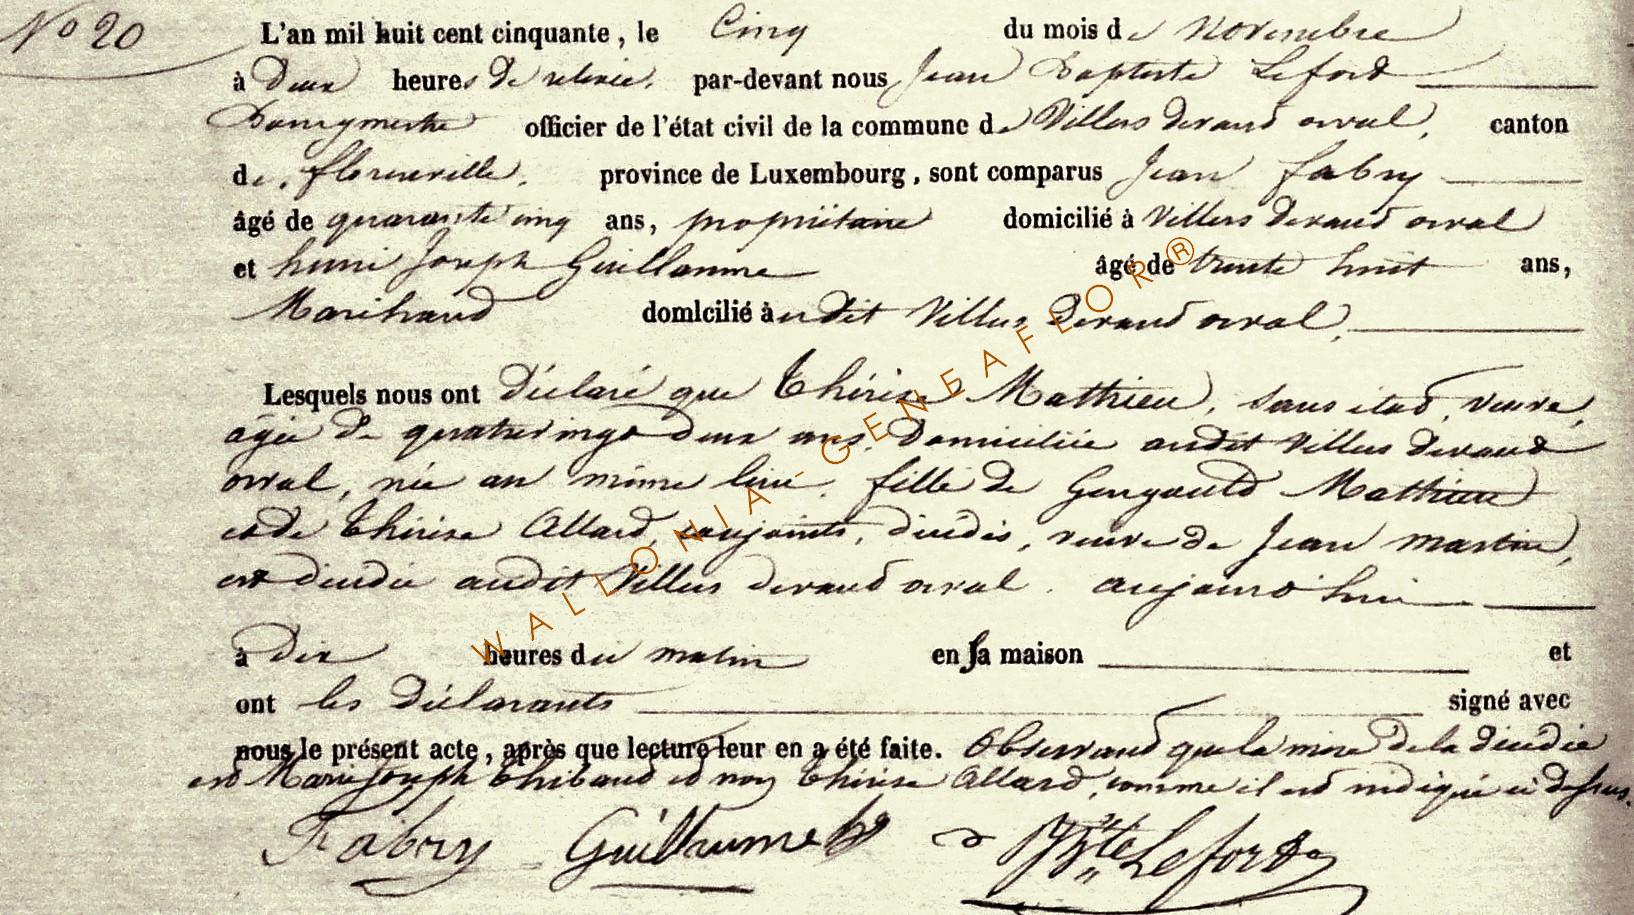 No 20
L'an mil huit cent cinquante, le Cinq du mois de novembre
à Deux heures De relevée, par-devant nous Jean Baptiste Lefort
Bourgmestre officier de l'état civil de la commune de Villers devant orval, canton
de, florenville, province de Luxembourg, sont comparus Jean fabry
âgé de quarante cinq ans, propriétaire domicilié à Villers devant orval
et henri Joseph Guillaume âgé de trente huit ans,
Marchand domicilié audit Villers Devant orval,
Lesquels nous ont Déclaré que Thérèse Mathieu, sans état, veuve,
âgée De quatrevingt deux ans, Domiciliée audit Villers devant
orval, née au même lieu, fille de Gengould Mathieu
et de Thérèse Allard, conjoints, décédés, veuve de Jean martin,
est décédée audit Villers devant orval. aujourd'hui
à Dix heures du matin en sa maison et
ont les Déclarants signé avec
nous le présent acte, après que lecture leur en a été faite. Observant que la mère de la décédée
est Marie Joseph Thibaud et non Thérèse Allard, comme il est indiqué ci dessus.
Fabry Guillaume hj JBte Lefort
WALLONIA-GENEAFLOR®